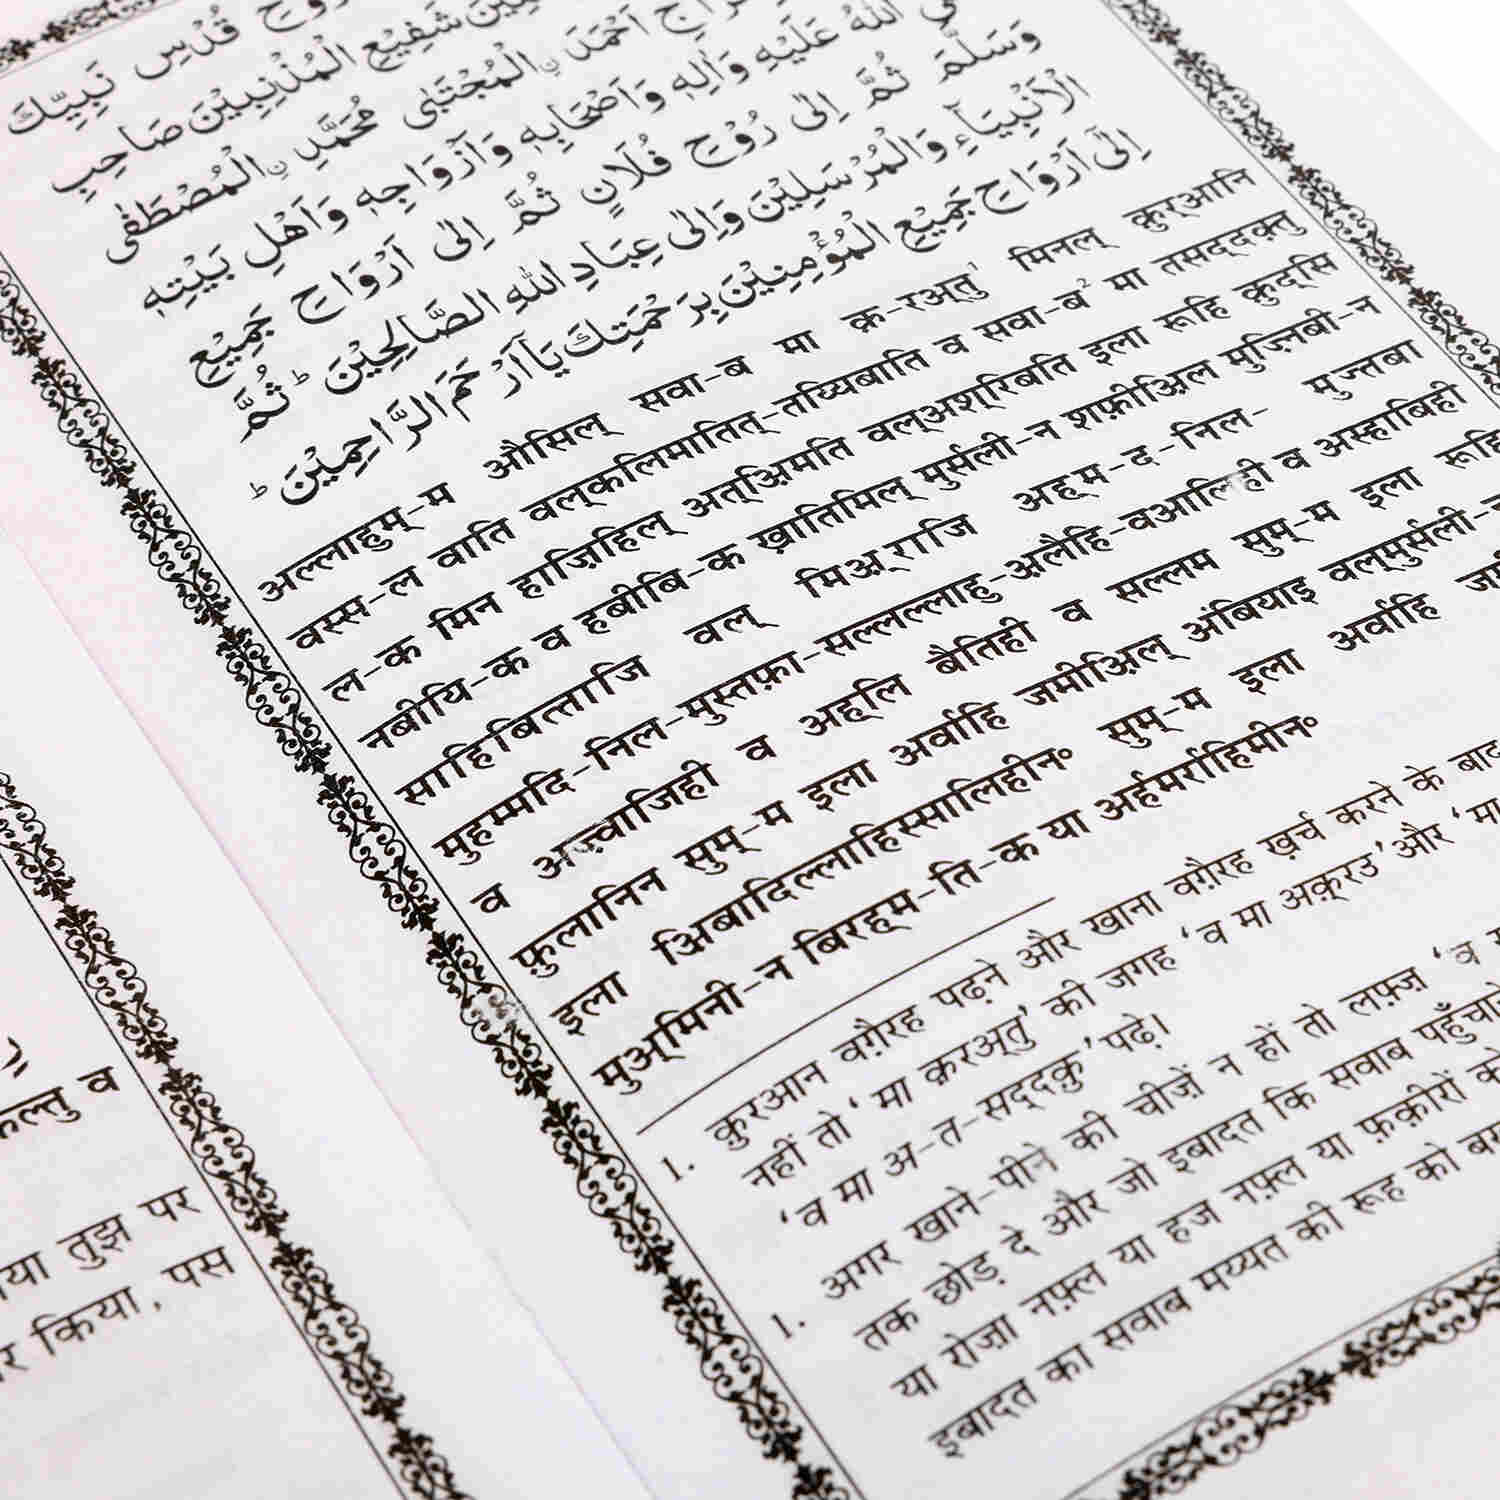 رُوْحِ قُدْسِ نَبِيِّكَ
شَفِيْعِ الْمُذْنِبِيْنَ صَاحِبِ
اَحْمَدَ نِ الْمُجْتَبٰى مُحَمَّدِ نِ الْمُصْطَفٰى
اللّٰهُ عَلَيْهِ وَاٰلِهٖ وَاَصْحَابِهٖ وَاَزْوَاجِهٖ وَاَهْلِ بَيْتِهٖ
وَسَلَّمَ ثُمَّ اِلٰى رُوْحِ فُلَانٍ ثُمَّ اِلٰى اَرْوَاحِ جَمِيْعِ
الْاَنْبِيَاءِ وَالْمُرْسَلِيْنَ وَاِلٰى عِبَادِ اللّٰهِ الصَّالِحِيْنَ ط ثُمَّ
اِلٰى اَرْوَاحِ جَمِيْعِ الْمُؤْمِنِيْنَ بِرَحْمَتِكَ يَآ اَرْحَمَ الرَّاحِمِيْنَ ط
अल्लाहुम्-म औसिल् सवा-ब मा क़-रअ्तु¹ मिनल् क़ुर्आनि
वस्स-ल वाति वल्कलिमातित्-तय्यिबाति व सवा-ब² मा तसद्दक़्तु
ल-क मिन हाज़िहिल् अत्अिमति वल्अश्रिबति इला रूहि क़ुद्सि
नबीयि-क व हबीबि-क ख़ातिमिल् मुर्सली-न शफ़ीअिल मुज़्निबी-न
साहिबित्ताजि वल् मिअ्राजि अह्म-द-निल- मुज्तबा
मुहम्मदि-निल-मुस्तफ़ा-सल्लल्लाहु-अलैहि-वआलिही व अस्हाबिही
व अज़्वाजिही व अह्लि बैतिही व सल्लम सुम्-म इला रूहि
फ़ुलानिन सुम्-म इला अर्वाहि जमीअिल् अंबियाइ वल्मुर्सली-न
इला अिबादिल्लाहिस्सालिहीनº सुम्-म इला अर्वाहि
मुअ्मिनी-न बिरह्म-ति-क या अर्हमर्राहिमीनº
1. क़ुरआन वग़ैरह पढ़ने और खाना वग़ैरह ख़र्च करने के बाद
नहीं तो 'मा क़रअ्तु' की जगह 'व मा अक़्रउ' और 'मा
'व मा अ-त-सद्दक़ु' पढ़े।
1. अगर खाने-पीने की चीज़ें न हों तो लफ़्ज़ 'व
तक छोड़ दे और जो इबादत कि सवाब पहुँचाने
या रोज़ा नफ़्ल या हज नफ़्ल या फ़क़ीरों को
इबादत का सवाब मय्यत की रूह को
कल्तु व
या तुझ पर
र किया, पस